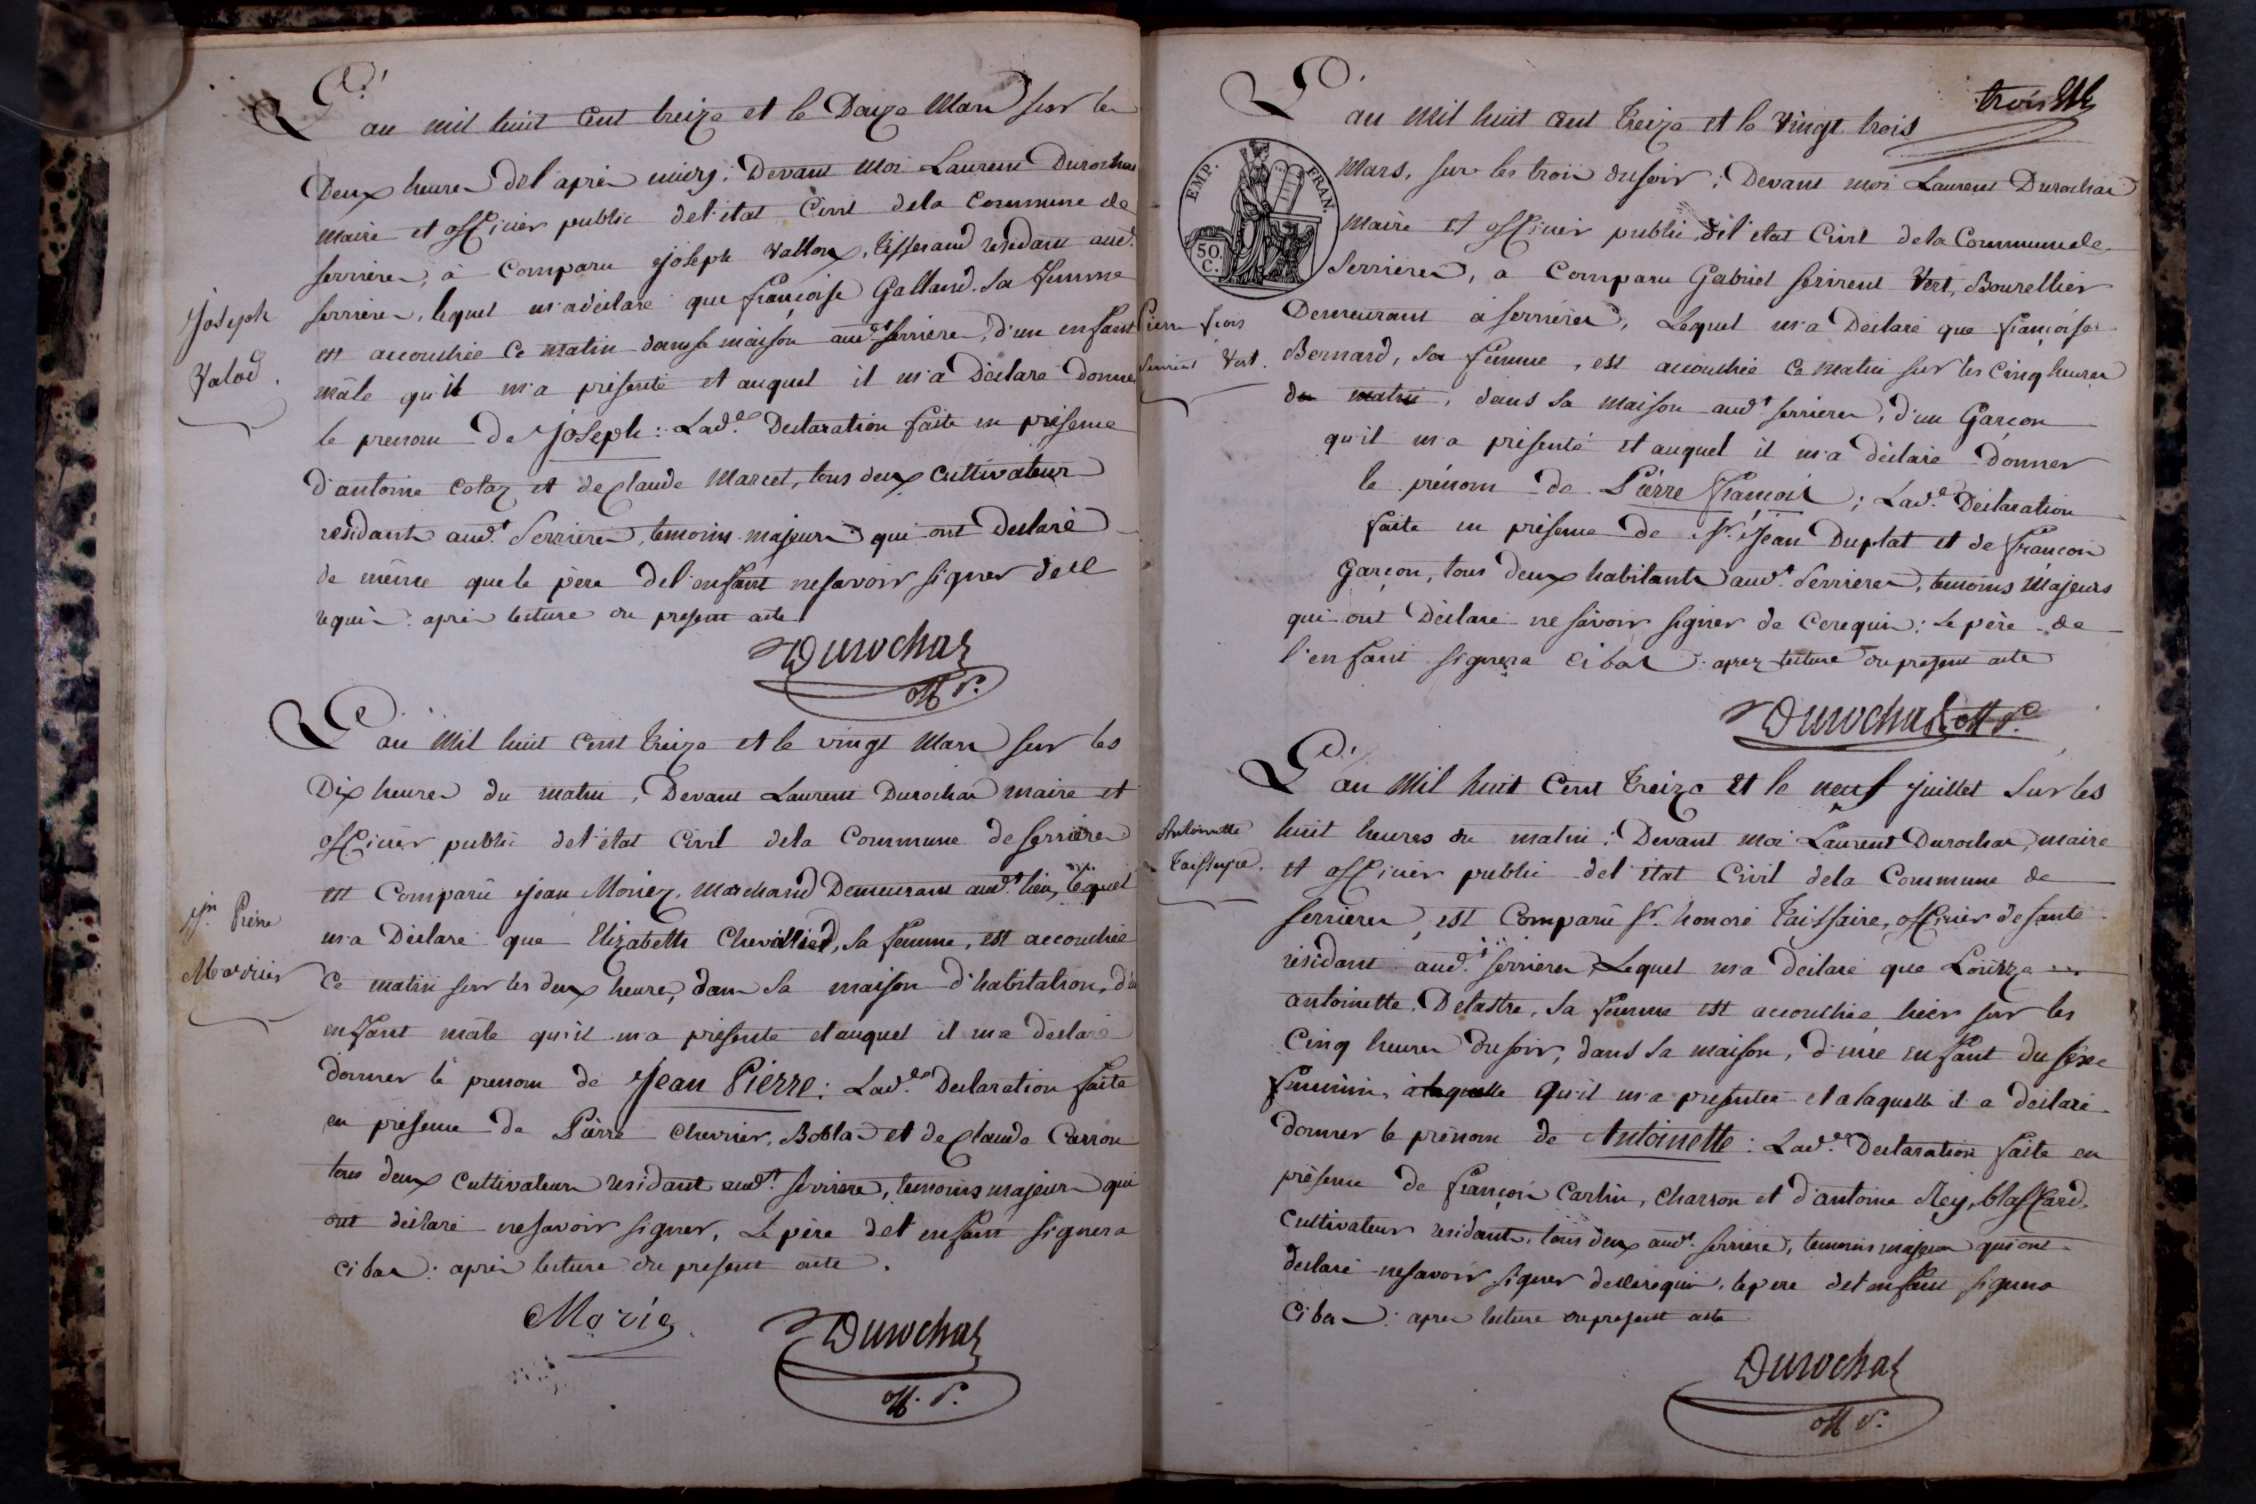 L'an mil huit Cent treize et le Douze Mars sur les
Deux heures del'après midy; Devant Moi Laurent Durochat
maire et officier public de l'état Civil dela Commune de
Serrières, à Comparu joseph Vallod, tisserand residant aud.
Serrières, lequel m'a déclaré que françoise Galland Sa femme
est accouchée Ce matin dans sa maison aud.t Serrières, d'un enfant
mâle qu'il m'a présenté et auquel il m'a Déclaré donner
le prenom De Joseph: Lad.e Declaration faite en présence
d'antoine Colaz et de Claude Marcet, tous deux Cultivateurs
residants aud.t Serrières, temoins majeurs qui ont Declaré
de même que le père del'enfant ne savoir signer de ce
requis: après lecture du présent acte.
Joseph
Valod.
Durochat
off. p.
L'an Mil huit Cent treize et le vingt Mars sur les
Dix heures du matin, Devant Laurent Durochat maire et
officier public del'état Civil dela Commune de Serrières
est Comparu Jean Moriez, marchand Demeurant aud.t lieu, lequel
m'a Déclaré que Elizabeth Chevallier, Sa femme, est accouchée
Ce matin sur les deux heures, dans Sa maison d'habitation, d'un
enfant mâle qu'il m'a présenté et auquel il m'a déclaré
donner le prenom de Jean Pierre: Lad.e Declaration faite
en présence de Pierre Chevrier, Boblad et de Claude Carron
tous deux Cultivateurs residants aud.t Serrières, temoins majeurs qui
ont déclaré ne savoir signer, Le père del'enfant signera
ci bas: après lecture du présent acte.
J.n Pierre
Moriez
Durochat
off. p.
trois
L'an Mil huit Cent treize et le Vingt trois
Mars, sur les trois du soir; Devant moi Laurent Durochat
Maire et officier public del'état Civil dela Commune de
Serrières, a Comparu Gabriel Serirent Vert, Bourellier
Demeurant à Serrières, Lequel m'a Déclaré que françoise
Bernard, sa femme, est accouchée Ce matin sur les Cinq heures
du matin, dans Sa maison aud.t Serrières, d'un Garçon
qu'il m'a présenté et auquel il m'a déclaré Donner
le prénom de Pierre François; Lad.e Déclaration
faite en présence de S.r Jean Duplat et de François
Garçon, tous deux habitants aud.t Serrières, temoins Majeurs
qui ont Déclaré ne sâvoir signer de Ce requis: Le père de
l'enfant signera ci bas: après lecture du présent acte
EMP. FRAN.
50. C.
Pierre fçois
Vert.
Durochat off. p.
L'an Mil huit Cent treize et le neuf juillet Sur les
huit heures du matin; Devant moi Laurent Durochat, maire
et officier public del'état Civil dela Commune de
Serrières, est Comparu S.r honoré Taissaire, officier de santé
résidant aud.t Serrières, Lequel m'a déclaré que Louize
antoinette Delastre, Sa femme est accouchée hier sur les
Cinq heures du soir, dans Sa maison, d'une enfant du sexe
feminin, à laquelle qu'il m'a présentée et a laquelle il a déclaré
donner le prénom de Antoinette: Lad.e Declaration faite en
présence de François Carlin, Charron et d'antoine Rey, blaffard
Cultivateur residants tous deux aud.t Serrières, temoins majeurs qui ont
declaré ne savoir signer de ce requis, le père del'enfant signera
Ci bas: après lecture du présent acte
Antoinette
Durochat
off. p.